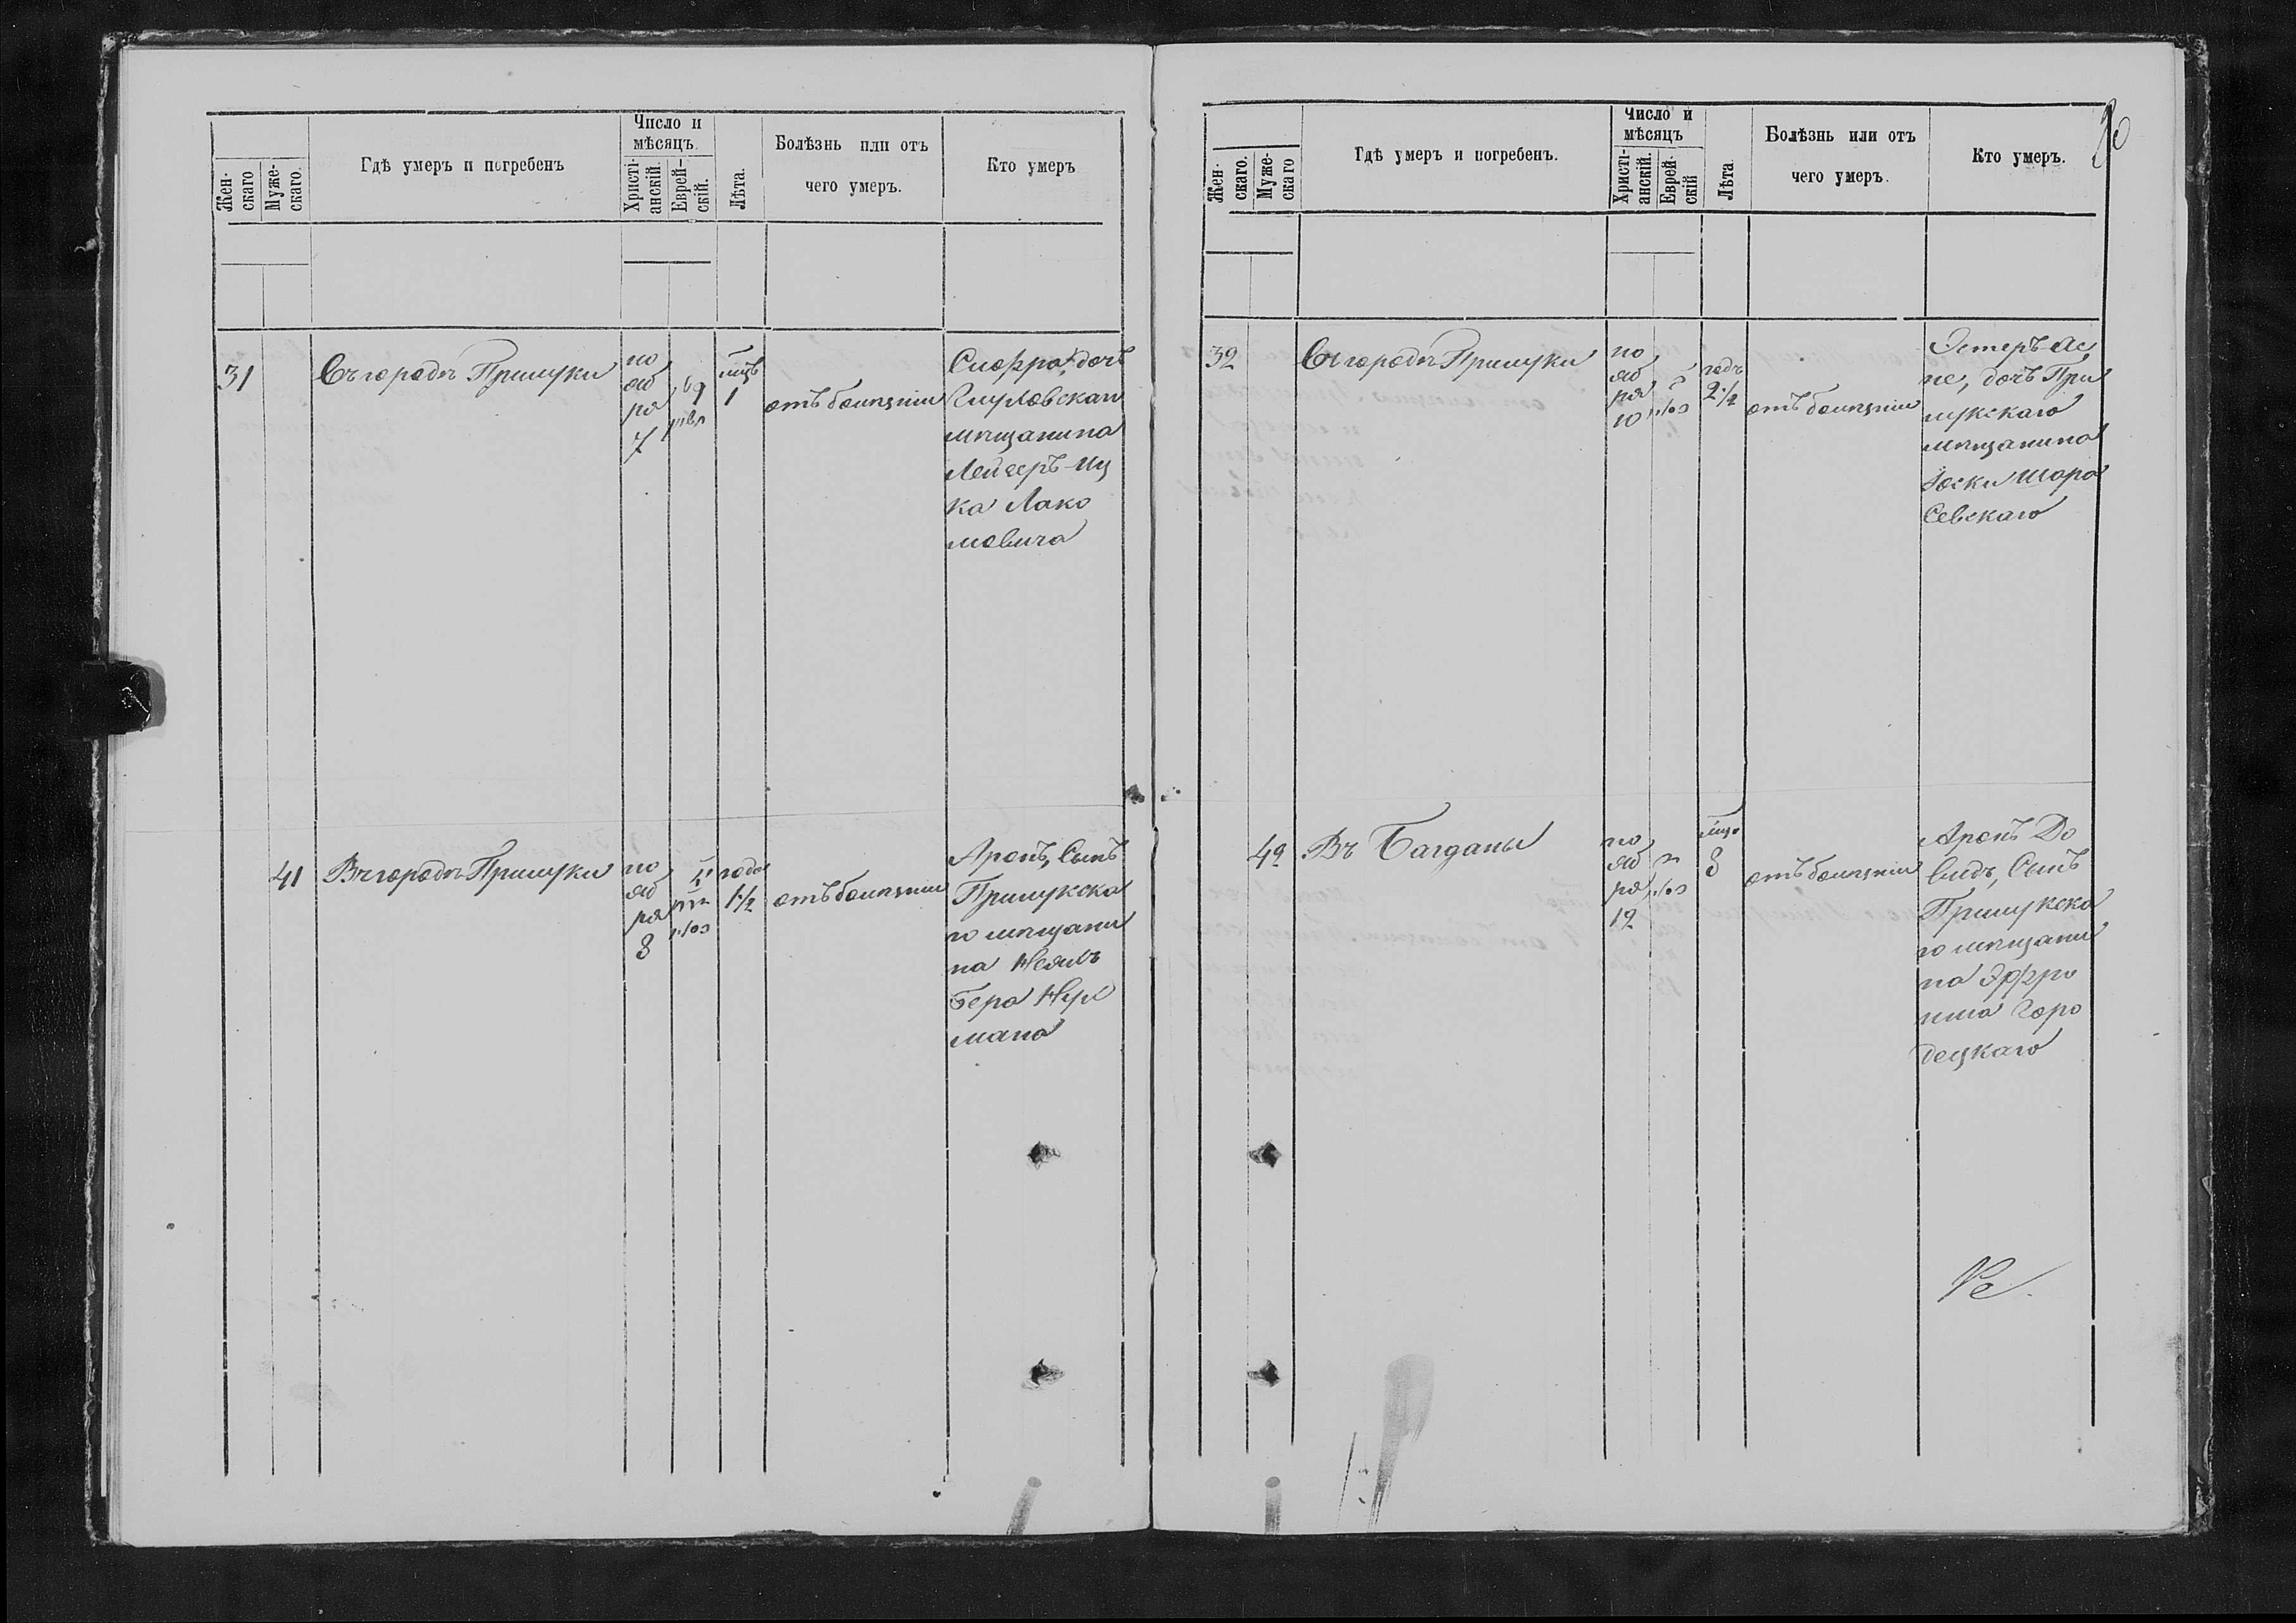 Жен-
скаго
Муже-
скаго.
Гдѣ умеръ и погребенъ
Число и
мѣсяцъ.
Христі-
анскій.
Еврей-
скій.
Лѣта.
Болѣзнь или отъ
чего умеръ.
Кто умеръ
31
Въ городѣ Прилуки
но
яб
ря
7
мцъ
1
отъ болѣзни
дочь
мѣщанина
Лейзеръ-Иц
ка Лахо
мовича
41
Въ городѣ Прилуки
но
яб
ря
8
года
1 1/2
отъ болѣзни
Аронъ, Сынъ
Прилукска
го мѣщани
на
Бера
мана
Жен-
скаго.
Муже-
скаго
Гдѣ умеръ и погребенъ.
Число и
мѣсяцъ
Христі-
анскій.
Еврей-
скій
Лѣта
Болѣзнь или отъ
чего умеръ.
Кто умеръ.
32
Въ городѣ Прилуки
но
яб
ря
10
годъ
2 1/2
отъ болѣзни
Эстеръ Ас
не, дочь При
лукскаго
мѣщанина
Іоски Шара
севскаго
42
Въ Богданы
но
яб
ря
12
8
отъ болѣзни
Аронъ До
видъ, Сынъ
Прилукска
го мѣщани
на Эфро
има Горо
децкаго